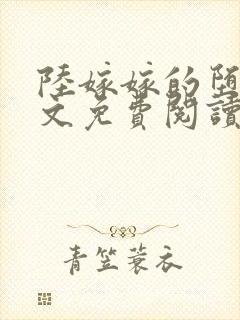 陸嫁嫁的墮
文免費閱讀
青笠蓑衣